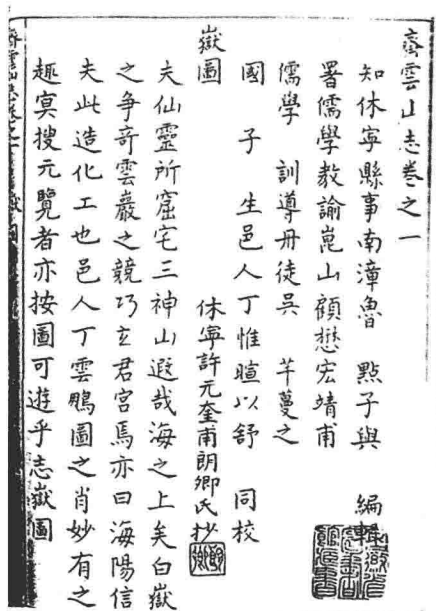 齊雲山志卷之一
知休寧縣事南漳魯 點子與 編輯
署儒學教諭崑山顧懋宏靖甫
儒學 訓導丹徒吳 芊蔓之
國 子 生邑人丁惟暄以舒 同校
休寧許元奎甫朗卿氏抄
嶽圖
夫仙靈所窟宅三神山遐哉海之上矣白嶽
之争奇雲巖之競巧玄君宫焉亦曰海陽信
夫此造化工也邑人丁雲鵬圖之肖妙有之
趣冥搜元覽者亦按圖可遊乎志嶽圖